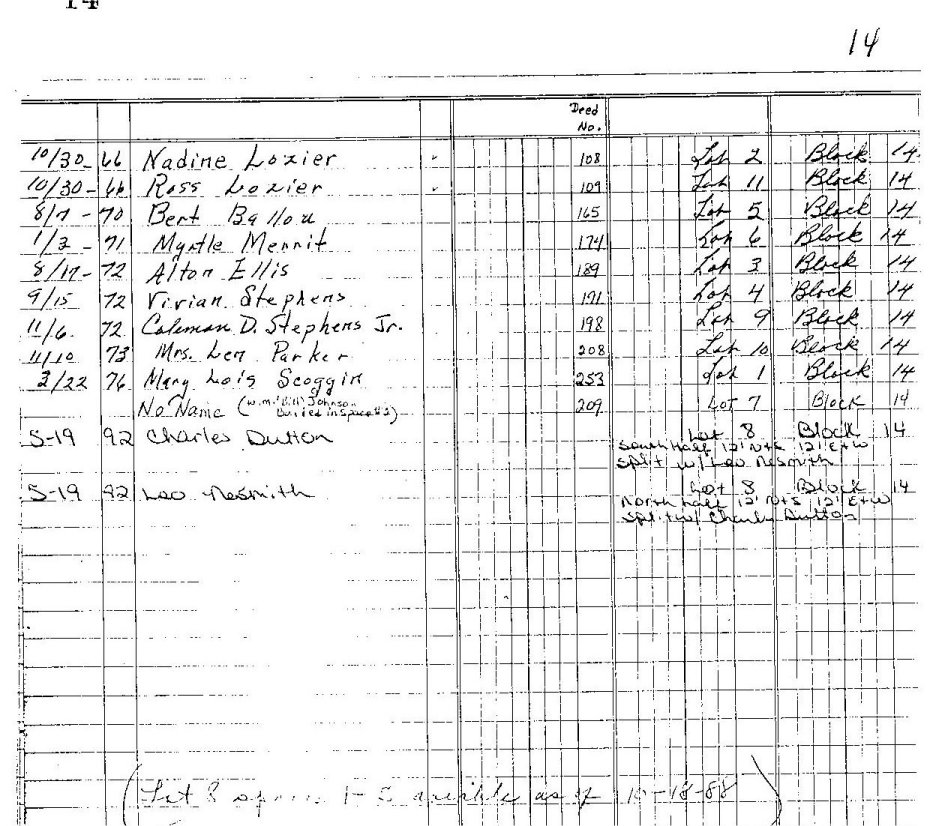 14
14
Deed
No.
10/30-66 Nadine Lozier 108 Lot 2 Block 14
10/30-66 Ross Lozier 109 Lot 11 Block 14
8/7-70 Bert Ballou 165 Lot 5 Block 14
1/2-71 Myrtle Merrit 174 Lot 6 Block 14
8/17-72 Alton Ellis 189 Lot 3 Block 14
9/15 72 Vivian Stephens 191 Lot 4 Block 14
11/6. 72 Coleman D. Stephens Jr. 198 Lot 9 Block 14
11/10 73 Mrs. Len Parker 208 Lot 10 Block 14
2/22 76 Mary Lois Scoggin 253 Lot 1 Block 14
No Name (W.M. (Bill) Johnson 209 LOT 7 Block 14
Buried in Space # 3)
5-19 92 Charles Dutton Lot 8 Block 14
South Half 12' N+S 12' E+W
split w/ Leo Nesmith
5-19 92 Leo Nesmith Lot 8 Block 14
North half 12' N+S 12' E+W
split w/ Charles Dutton
(Lot 8 1- as of 10-18-88)